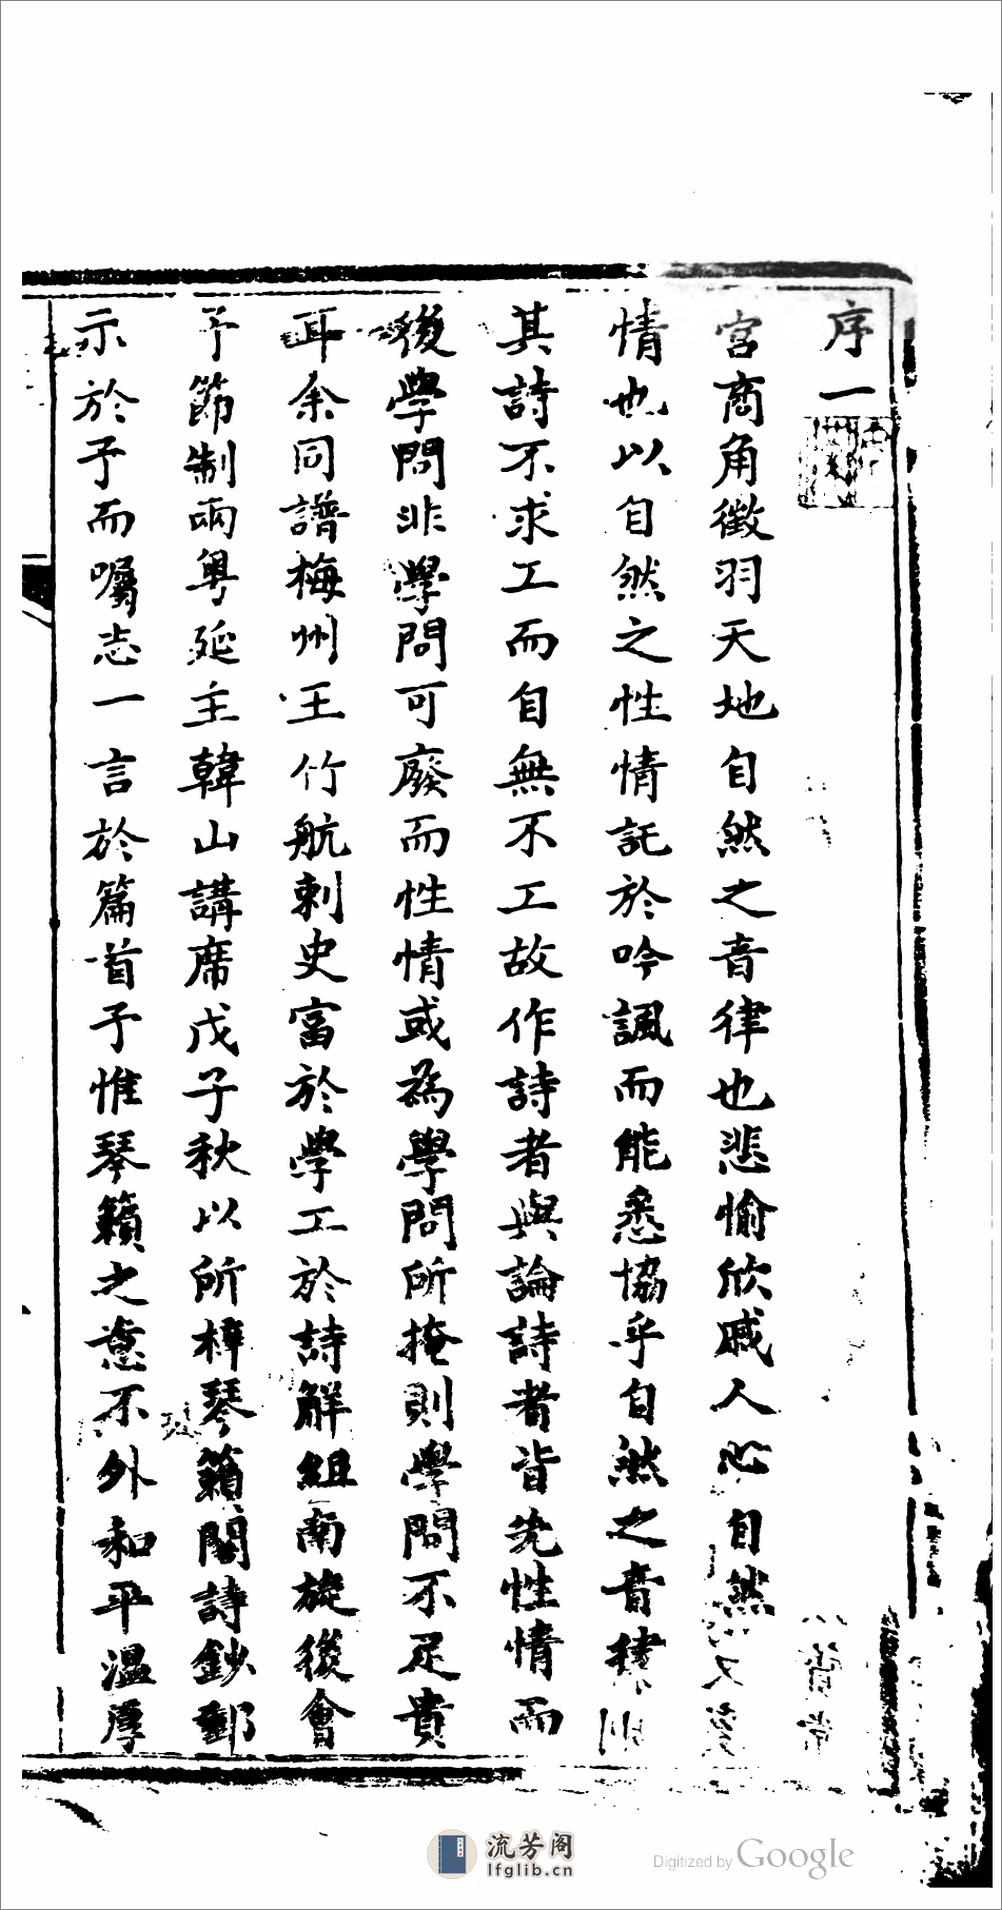 序一
宮商角徵羽天地自然之音律也悲愉欣戚人心自然
情也以自然之性情託於吟諷而能悉協乎自然之音律
其詩不求工而自無不工故作詩者與論詩者皆先性情而
後學問非學問可廢而性情或為學問所掩則學問不足貴
耳余同譜梅州王竹航刺史富於學工於詩解組南旋後會
予節制兩粵延主韓山講席戊子秋以所梓琴籟閣詩鈔郵
示於予而囑志一言於篇首予惟琴籟之意不外和平溫厚
流芳阁
lfglib.cn
Digitized by Google